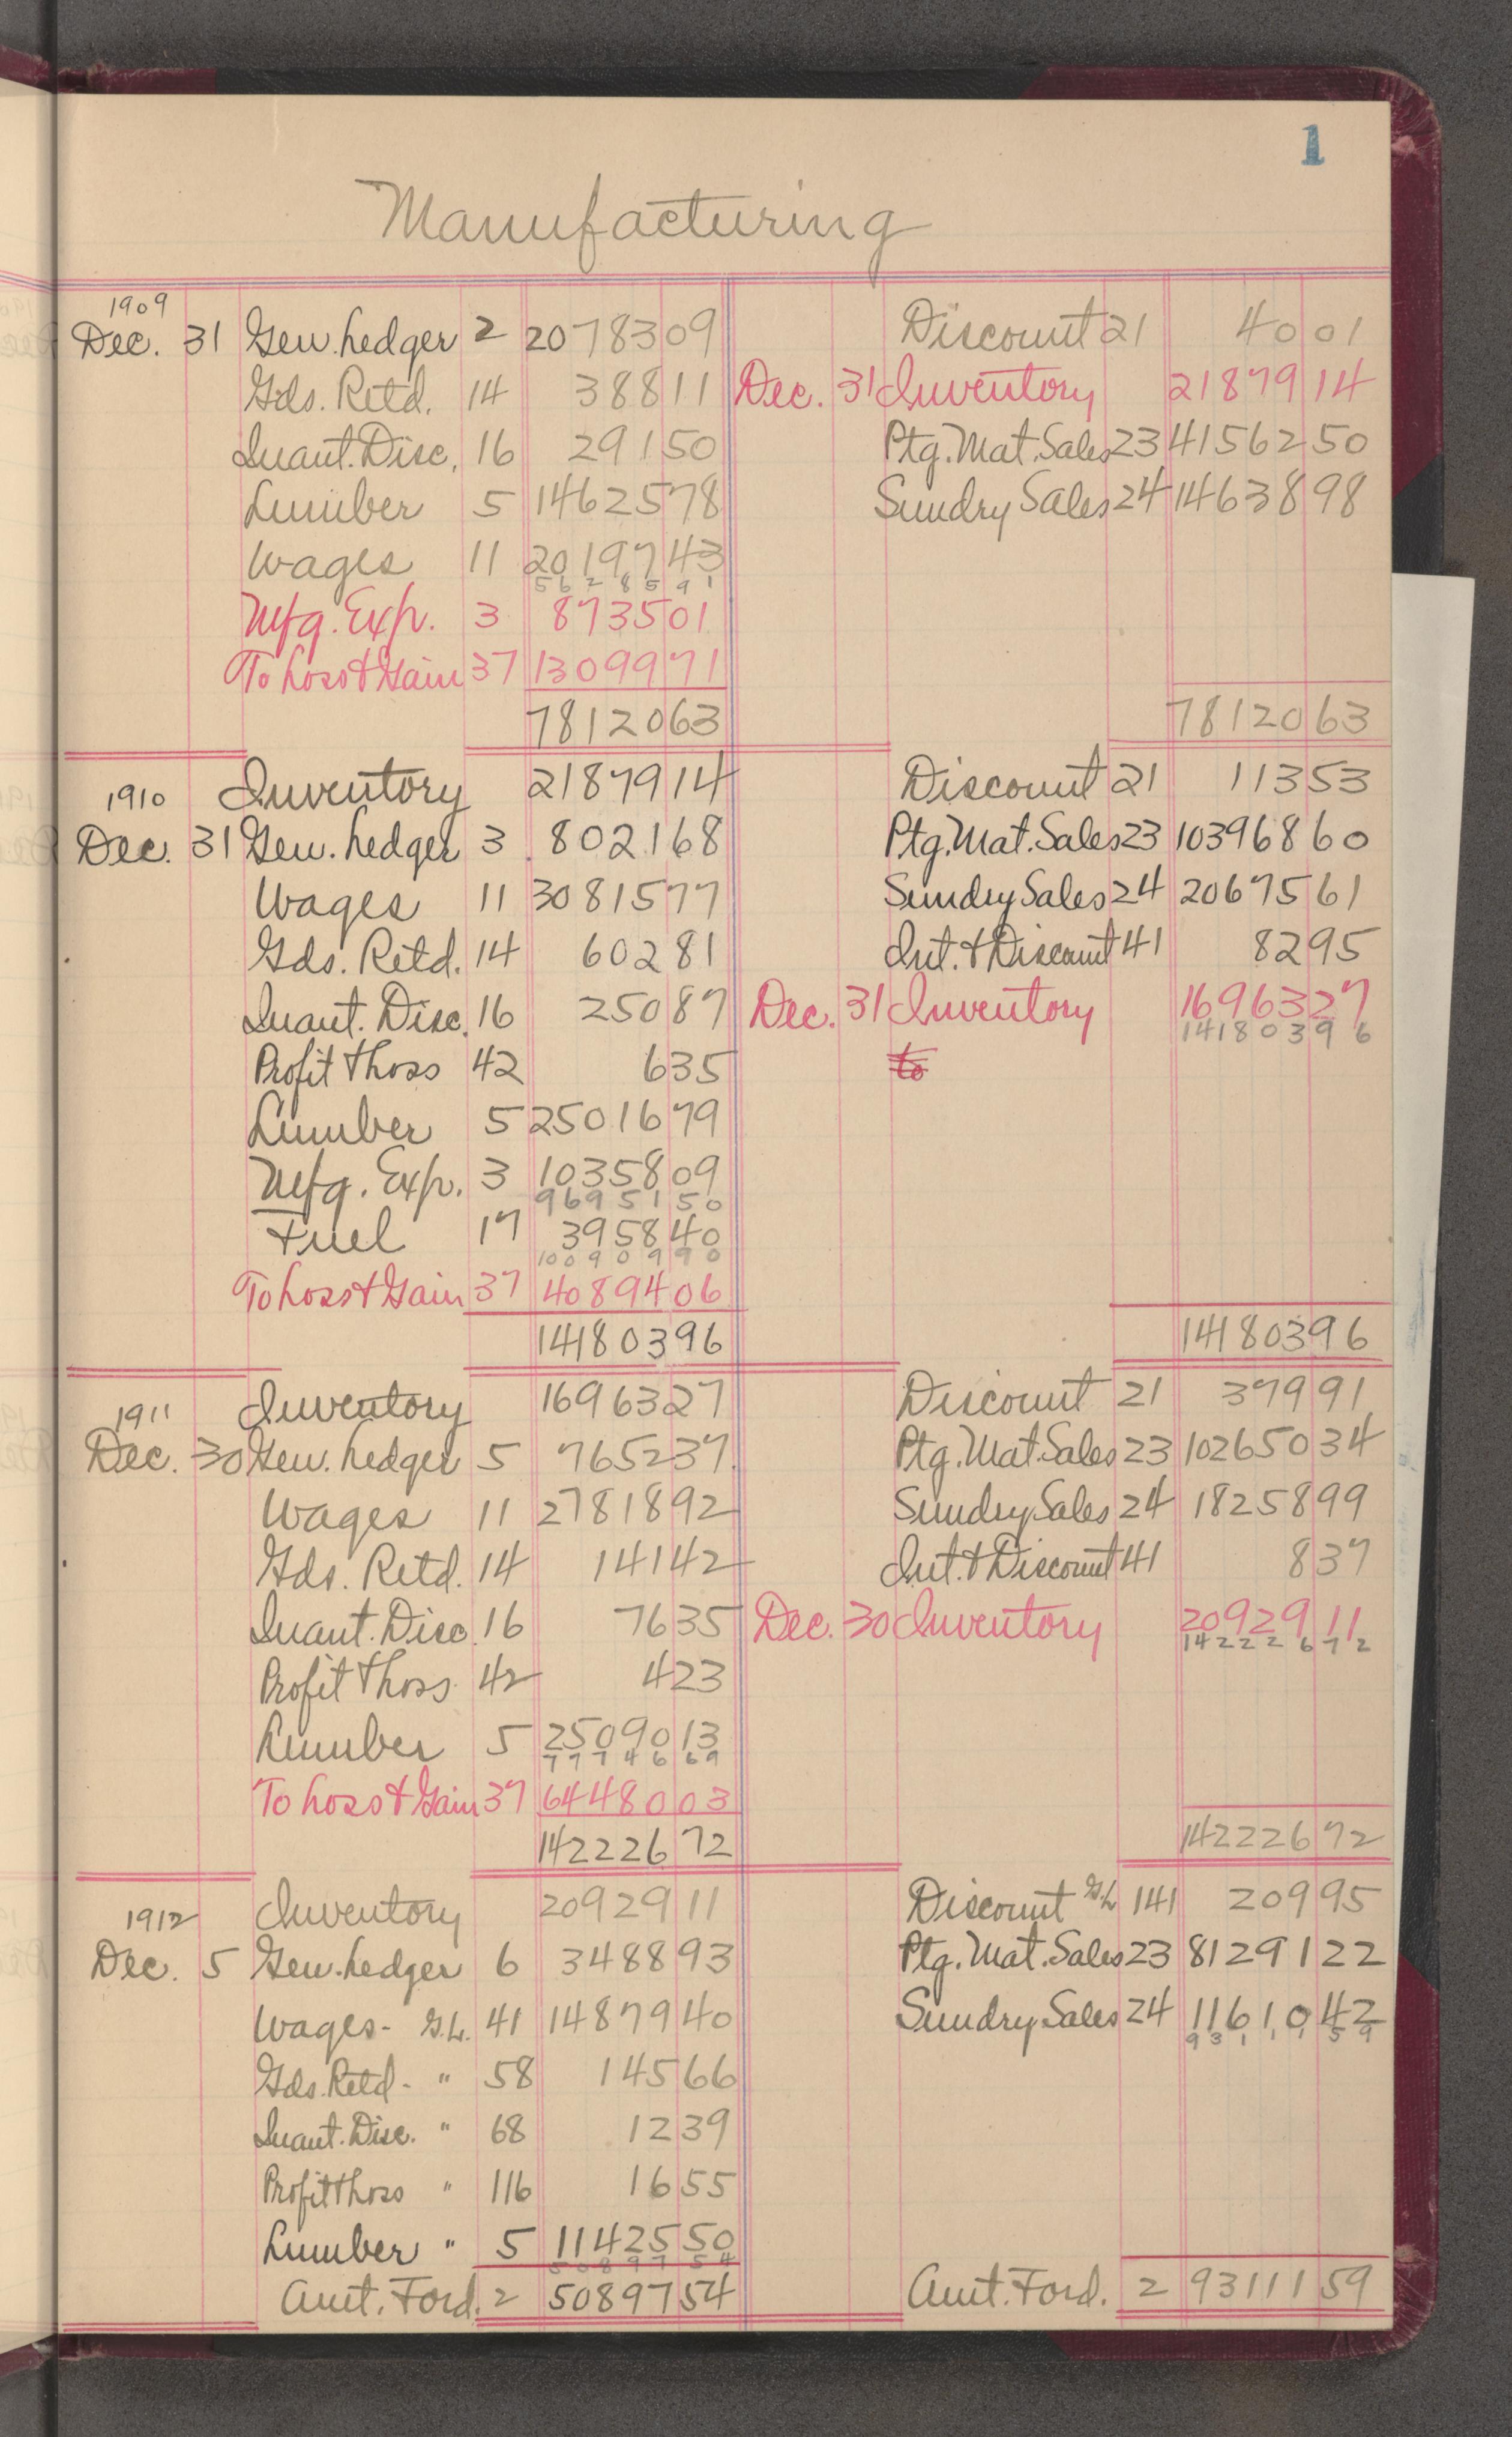 1
Manufacturing
1909
Dec. 31 Gen. Ledger 2 20783 09 Discount 21 40 01
Gds. Retd. 14 388 11 Dec. 31 Inventory 21879 14
Quant. Disc. 16 291 50 Ptg. Mat. Sales 23 41562 50
Lumber 5 14625 78 Sundry Sales 24 14638 98
Wages 11 20197 43
56285 91
Mfg. Exp. 3 8735 01
To Loss & Gain 37 13099 71
78120 63 78120 63
Inventory 21879 14 Discount 21 113 53
1910
Dec. 31 Gen. Ledger 3 8021 68 Ptg. Mat. Sales 23 103968 60
Wages 11 30815 77 Sundry Sales 24 20675 61
Gds. Retd. 14 602 81 Int. & Discount 41 82 95
Quant. Disc. 16 250 87 Dec. 31 Inventory 16963 27
141803 96
Profit & Loss 42 6 35 to
Lumber 5 25016 79
Mfg. Exp. 3 10358 09
96951 50
Fuel 17 3958 40
100909 90
To Loss & Gain 37 40894 06
141803 96 141803 96
Inventory 16963 27 Discount 21 379 91
1911
Dec. 30 Gen. Ledger 5 7652 37 Ptg. Mat. Sales 23 102650 34
Wages 11 27818 92 Sundry Sales 24 18258 99
Gds. Retd. 14 141 42 Int. & Discount 41 8 37
Quant. Disc. 16 76 35 Dec. 30 Inventory 20929 11
142226 72
Profit & Loss 42 4 23
Lumber 5 25090 13
77746 69
To Loss & Gain 37 64480 03
142226 72 142226 72
Inventory 20929 11 Discount G.L. 141 209 95
1912
Dec. 5 Gen. Ledger 6 3488 93 Ptg. Mat. Sales 23 81291 22
Wages - G.L. 41 14879 40 Sundry Sales 24 11610 42
93111 59
Gds. Retd - " 58 145 66
Quant. Disc. " 68 12 39
Profit & Loss " 116 16 55
Lumber " 5 11425 50
50897 54
Amt. Ford. 2 50897 54 Amt. Ford. 2 93111 59